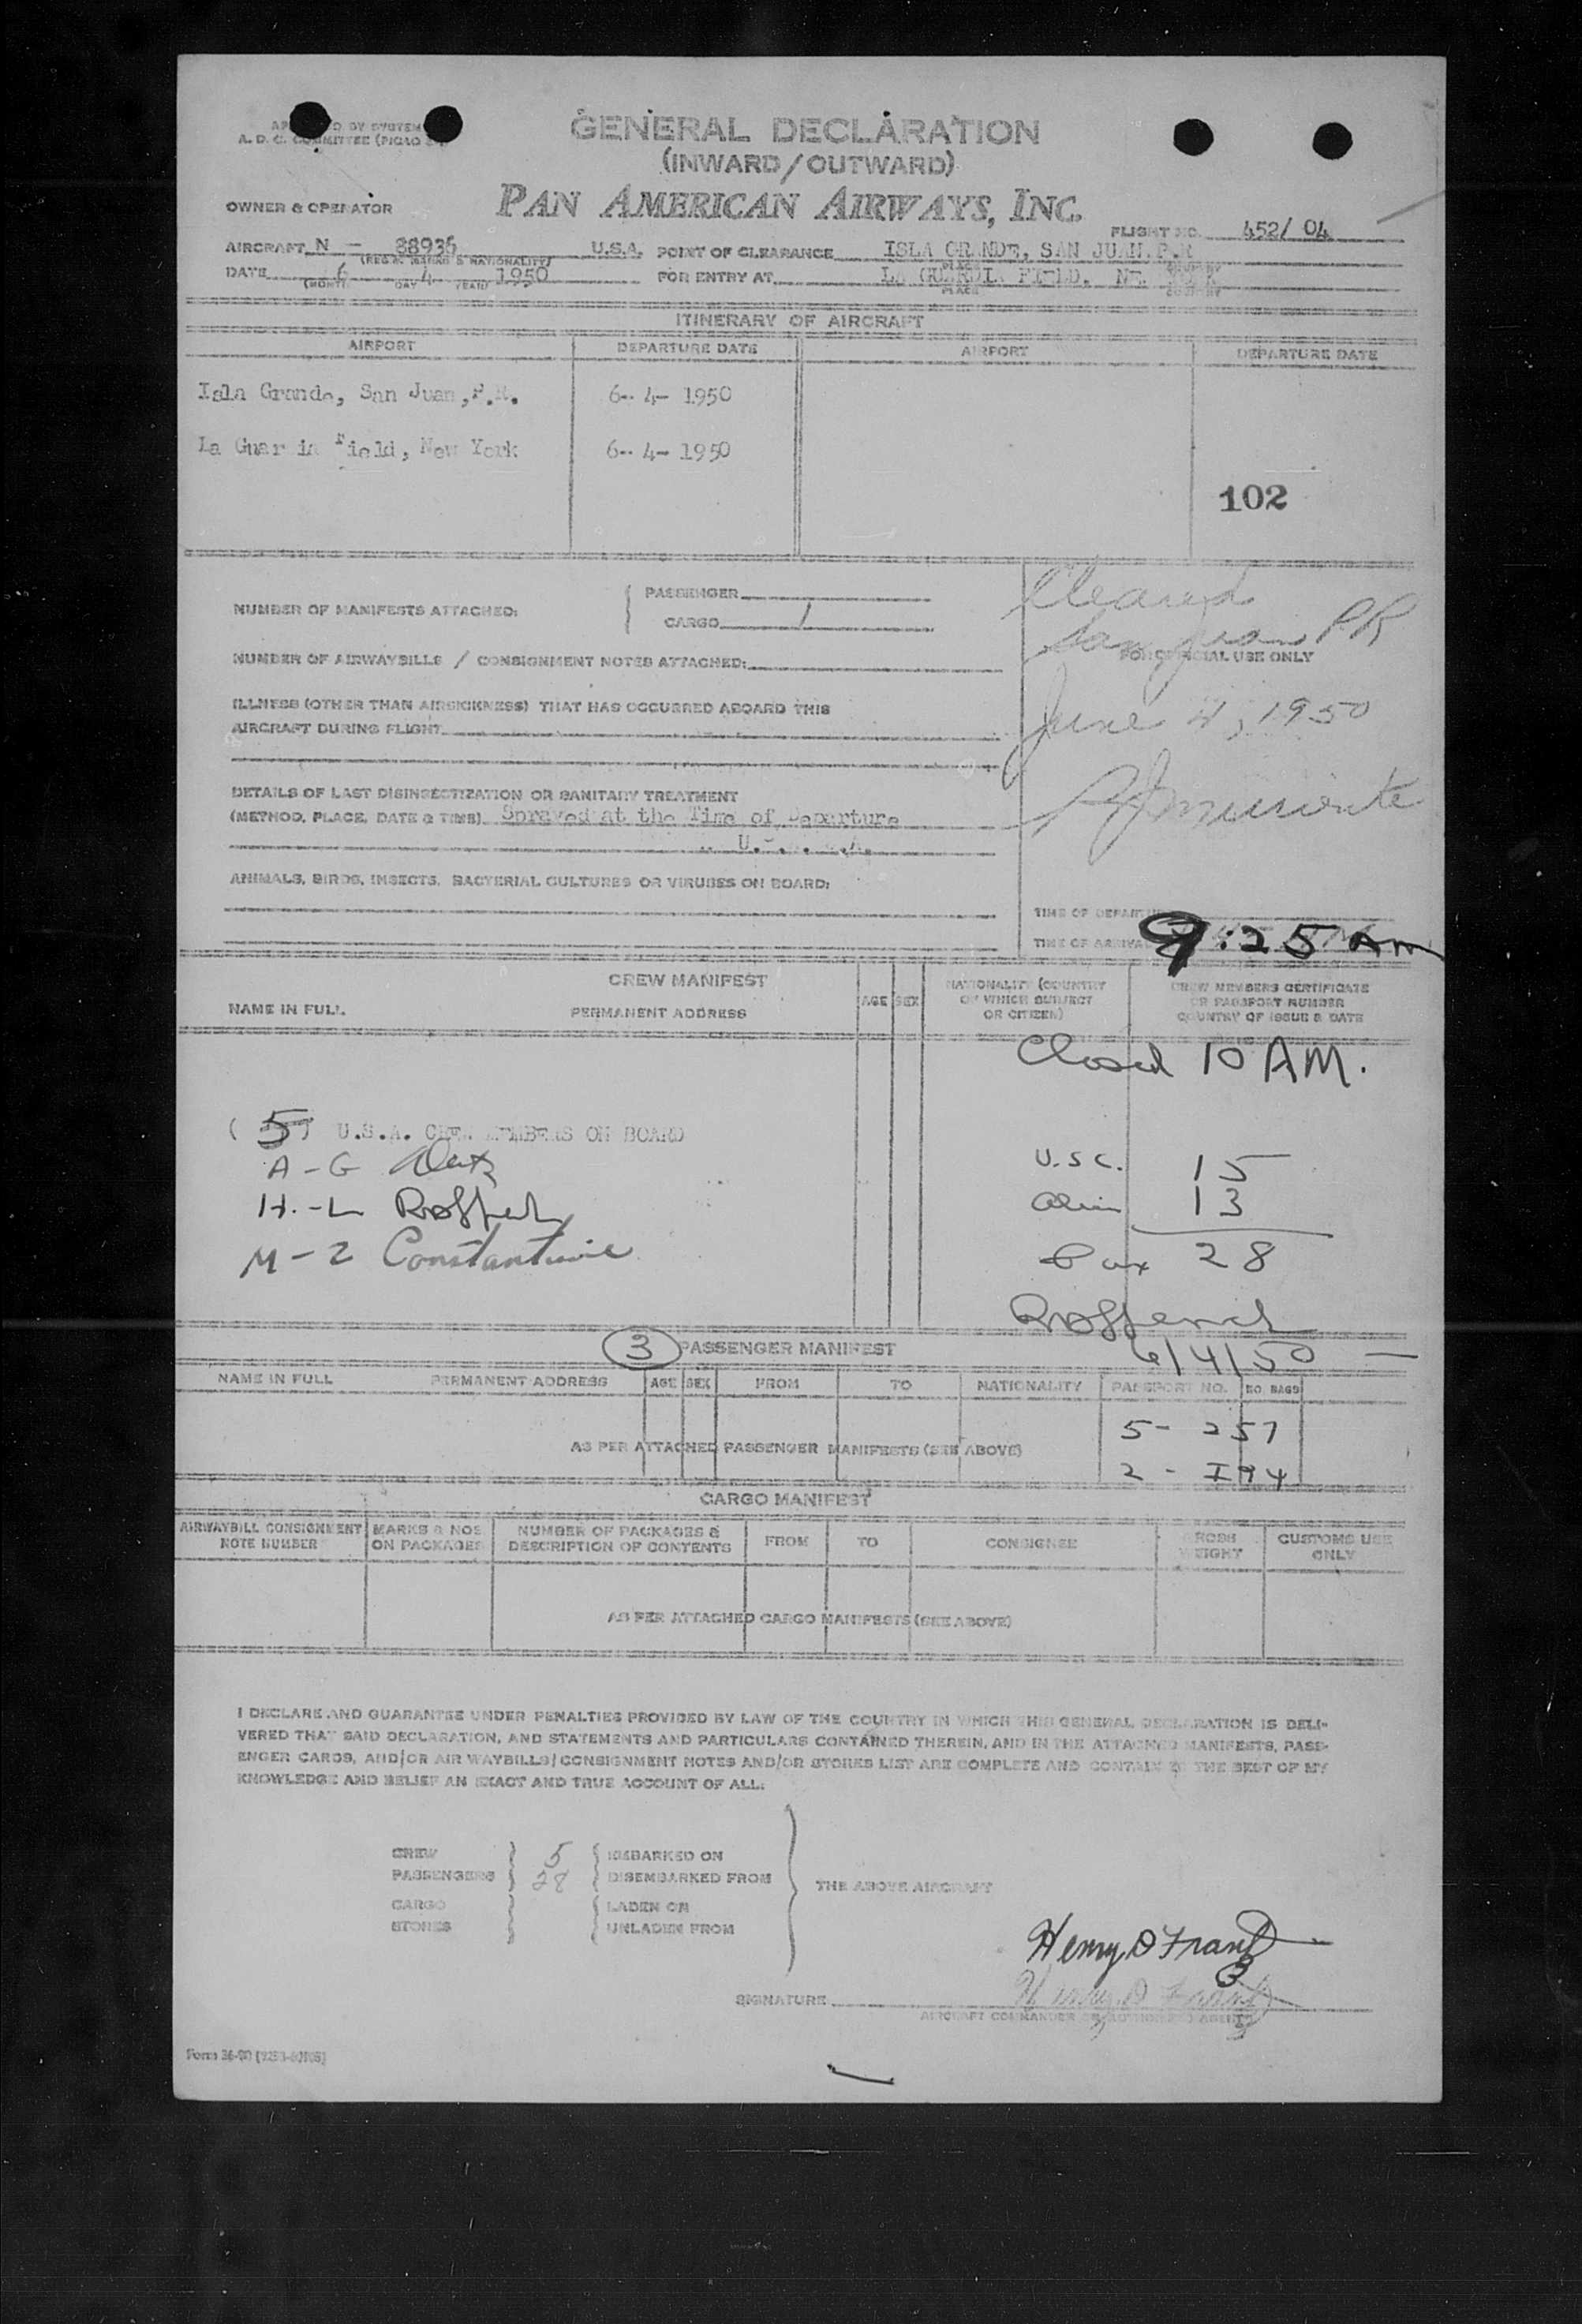 GENERAL DECLARATION
A. D. C. COMMITTEE
(INWARD/OUTWARD)
OWNER & OPERATOR PAN AMERICAN AIRWAYS, INC.
FLIGHT NO. 452/ 04
AIRCRAFT N - 88936 U.S.A. POINT OF CLEARANCE ISLA GRANDE, SAN JUAN, P.R
(REG'N. MARKS & NATIONALITY) PLACE COUNTRY
DATE 6 4 1950 FOR ENTRY AT LA GUARDIA FIELD,
(MONTH DAY YEAR) PLACE COUNTRY
ITINERARY OF AIRCRAFT
AIRPORT DEPARTURE DATE AIRPORT DEPARTURE DATE
Isla Grande, San Juan, P.R. 6- 4- 1950
La Guar ia Field, New York 6- 4- 1950
102
NUMBER OF MANIFESTS ATTACHED: PASSENGER
CARGO 1
Cleared
San Juan PR
NUMBER OF AIRWAYBILLS / CONSIGNMENT NOTES ATTACHED:
FOR OFFICIAL USE ONLY
ILLNESS (OTHER THAN AIRSICKNESS) THAT HAS OCCURRED ABOARD THIS
AIRCRAFT DURING FLIGHT
June 4, 1950
DETAILS OF LAST DISINSECTIZATION OR SANITARY TREATMENT
(METHOD, PLACE, DATE & TIME) Sprayed at the Time of Departure
ANIMALS, BIRDS, INSECTS, BACTERIAL CULTURES OR VIRUSES ON BOARD:
TIME OF DEPARTURE
TIME OF ARRIVAL 9:25 AM
CREW MANIFEST
NAME IN FULL PERMANENT ADDRESS AGE SEX NATIONALITY (COUNTRY OF WHICH SUBJECT OR CITIZEN) CREW MEMBERS CERTIFICATE OR PASSPORT NUMBER COUNTRY OF ISSUE & DATE
Closed 10 AM.
(5) U.S.A. CREW MEMBERS ON BOARD
A - G
U.S.C. 15
H. - L
Alien 13
M - Z Constantine
Pax 28
3 PASSENGER MANIFEST
6/4/50
NAME IN FULL PERMANENT ADDRESS AGE SEX FROM TO NATIONALITY PASSPORT NO. NO. BAGS
5 - 257
AS PER ATTACHED PASSENGER MANIFESTS (SEE ABOVE)
2 - I94
CARGO MANIFEST
AIRWAYBILL CONSIGNMENT NOTE NUMBER MARKS & NOS ON PACKAGES NUMBER OF PACKAGES & DESCRIPTION OF CONTENTS FROM TO CONSIGNEE GROSS WEIGHT CUSTOMS USE ONLY
AS PER ATTACHED CARGO MANIFESTS (SEE ABOVE)
I DECLARE AND GUARANTEE UNDER PENALTIES PROVIDED BY LAW OF THE COUNTRY IN WHICH THIS GENERAL DECLARATION IS DELI-
VERED THAT SAID DECLARATION, AND STATEMENTS AND PARTICULARS CONTAINED THEREIN, AND IN THE ATTACHED MANIFESTS, PASS-
ENGER CARDS, AND/OR AIR WAYBILLS/CONSIGNMENT NOTES AND/OR STORES LIST ARE COMPLETE AND CONTAIN TO THE BEST OF MY
KNOWLEDGE AND BELIEF AN EXACT AND TRUE ACCOUNT OF ALL:
CREW 5 EMBARKED ON
PASSENGERS 28 DISEMBARKED FROM
THE ABOVE AIRCRAFT
CARGO LADEN ON
STORES UNLADEN FROM
Henry D Frantz
SIGNATURE Henry D Frantz
AIRCRAFT COMMANDER OR AUTHORIZED AGENT